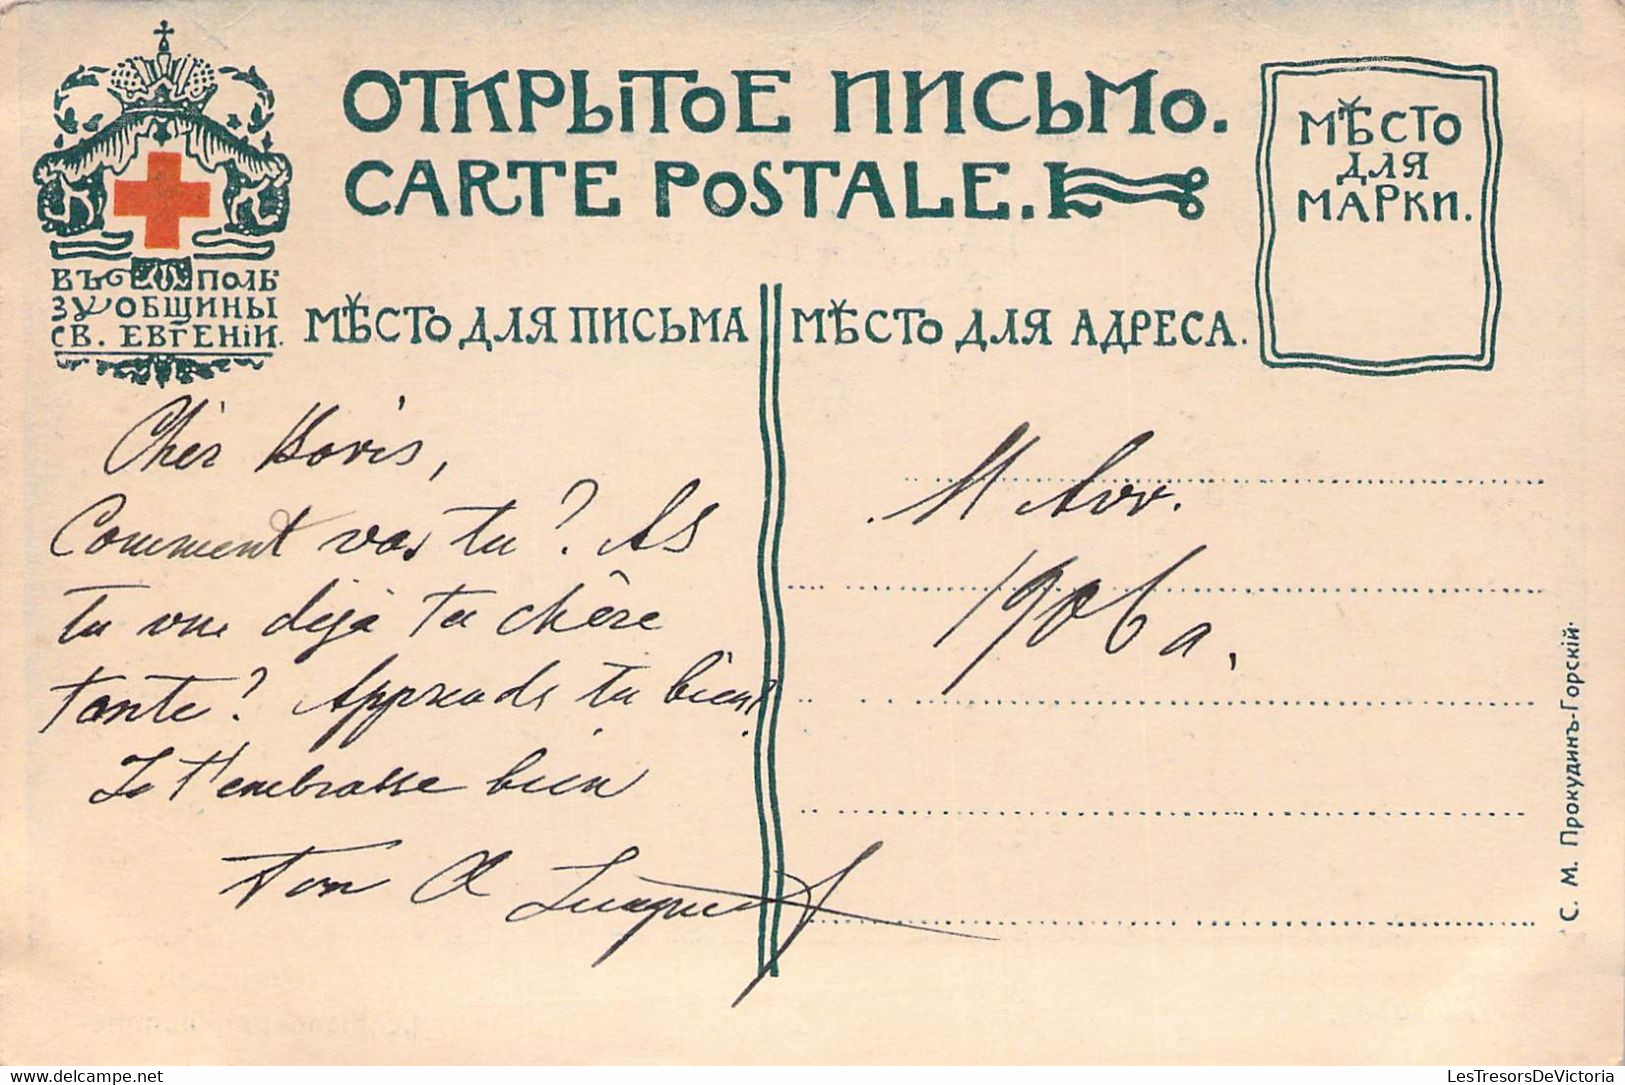 ОТКРЫТОЕ ПИСЬМО.
CARTE POSTALE.
МѢСТО
ДЛЯ
МАРКИ.
ВЪ ПОЛЬ
ЗУ ОБЩИНЫ
СВ. ЕВГЕНІИ.
МѢСТО ДЛЯ ПИСЬМА
МѢСТО ДЛЯ АДРЕСА.
Cher Boris,
Comment vas tu? As
tu vue déjà ta chère
tante? Apprends tu bien?
Je t'embrasse bien
Ton A
11 Avr.
1906 a.
С. М. Прокудинъ-Горскій.
LesTresorsDeVictoria